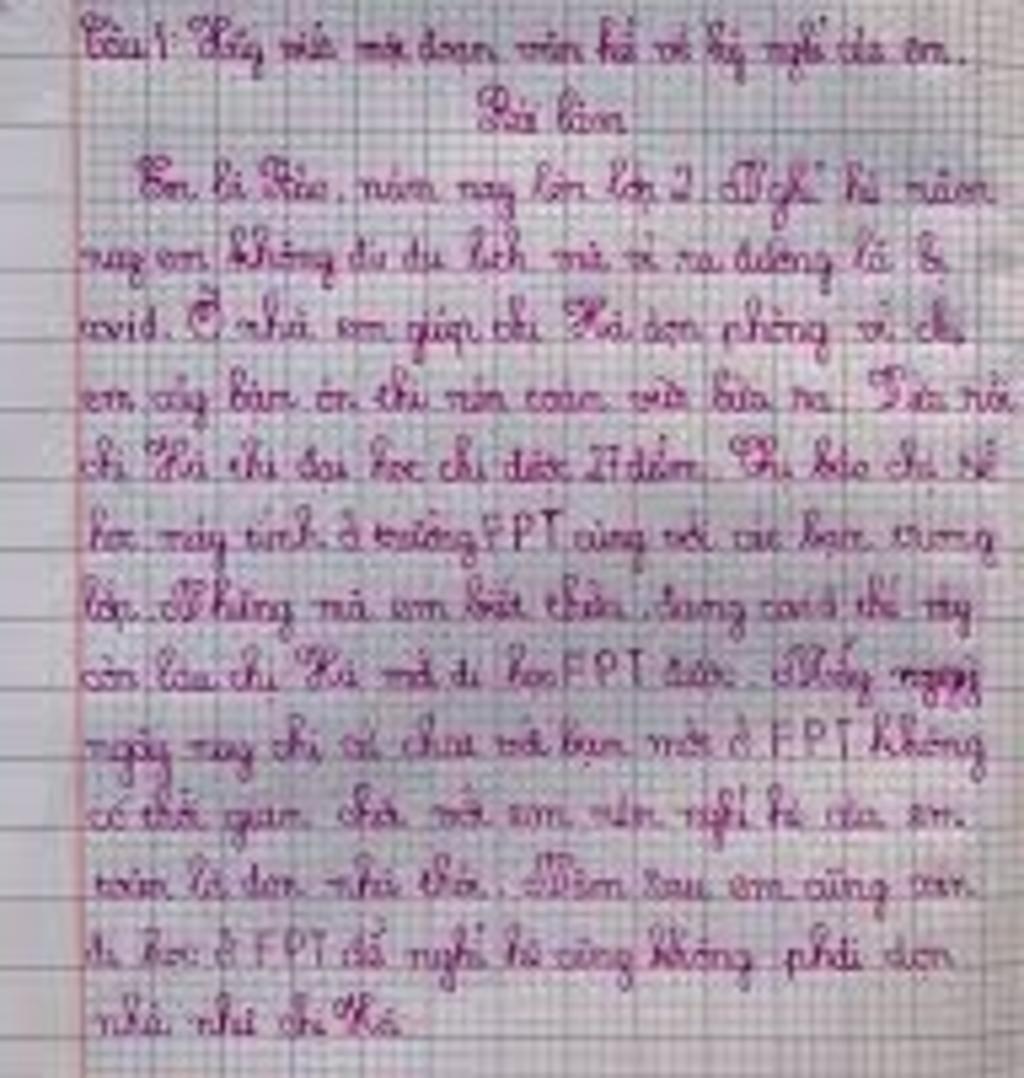 Câu 1: Hãy viết một đoạn văn kể về kỳ nghỉ của em.
Bài làm
Em là Bảo, năm nay lên lớp 2. Nghỉ hè năm
nay em không đi du lịch mà vì ra đường là bị
covid. Ở nhà em giúp chị Hà dọn phòng vì chị
em cày bàn ăn thi nên toàn vứt bừa ra. Vừa rồi
chị Hà thi đại học chị được 27 điểm. Chị bảo chị sẽ
học máy tính ở trường FPT cùng với các bạn trong
lớp. Nhưng mà em biết thừa, đang covid thế này
còn lâu chị Hà mới đi học FPT được. Mấy
ngày nay chị cứ chat với bạn mới ở FPT không
có thời gian chơi với em nên nghỉ hè của em
toàn là dọn nhà thôi. Năm sau em cũng
đi học ở FPT để nghỉ hè cũng không phải dọn
nhà như chị Hà